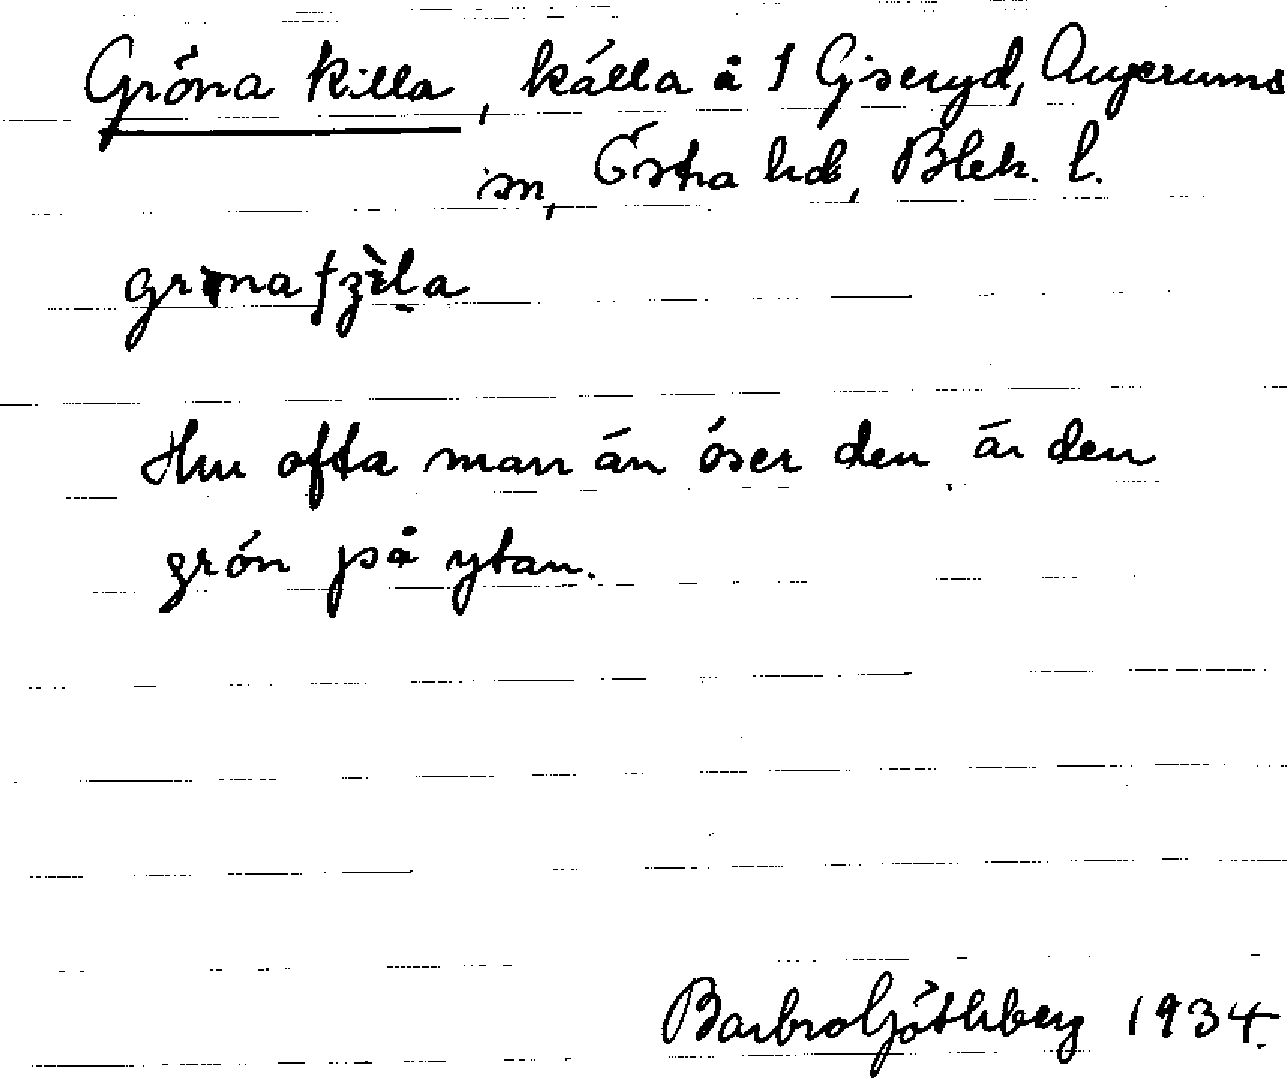 Gröna killa, källa å 1 Giseryd, Augerums
sn, Östra hd, Blek. l.
Hur ofta man än öser den är den
grön på ytan.
Barbro Göthberg 1934.